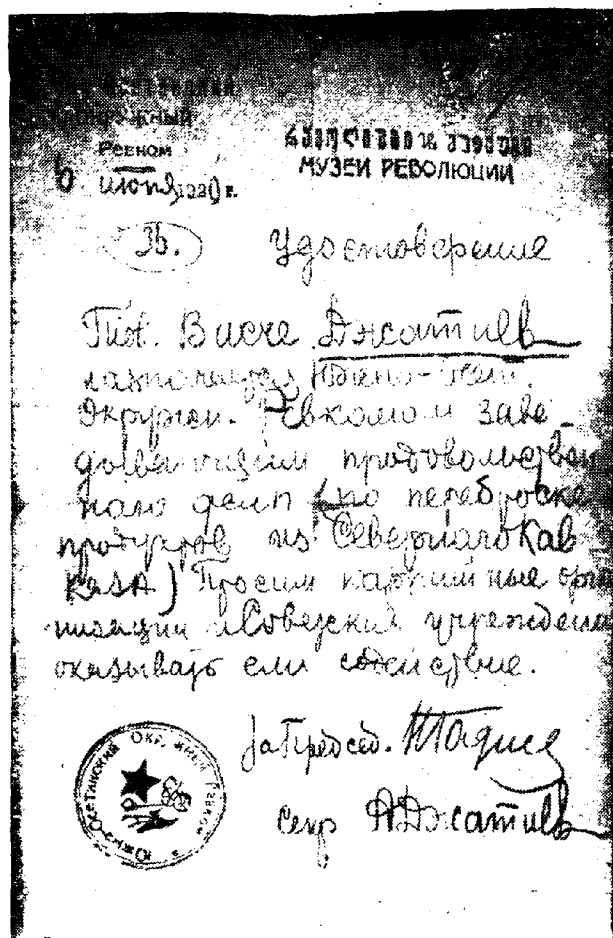 Окружный
Ревком
6 июня 1920 г.
რევოლუციის მუზეუმი
МУЗЕЙ РЕВОЛЮЦИИ
36.
Удостоверение
Тит. Висче Джатиев
назначается Южно-Осет.
Окружн. Ревкомом заве-
дывающим продовольствен
наго (по переброске
продуктов из Севернаго Кав
каза) Просим партийные орга
низации и Советския учреждения
оказывать ему содействие.
За Председ.
Секр АДжатиев
Южно-Осетинский Окружный Ревком